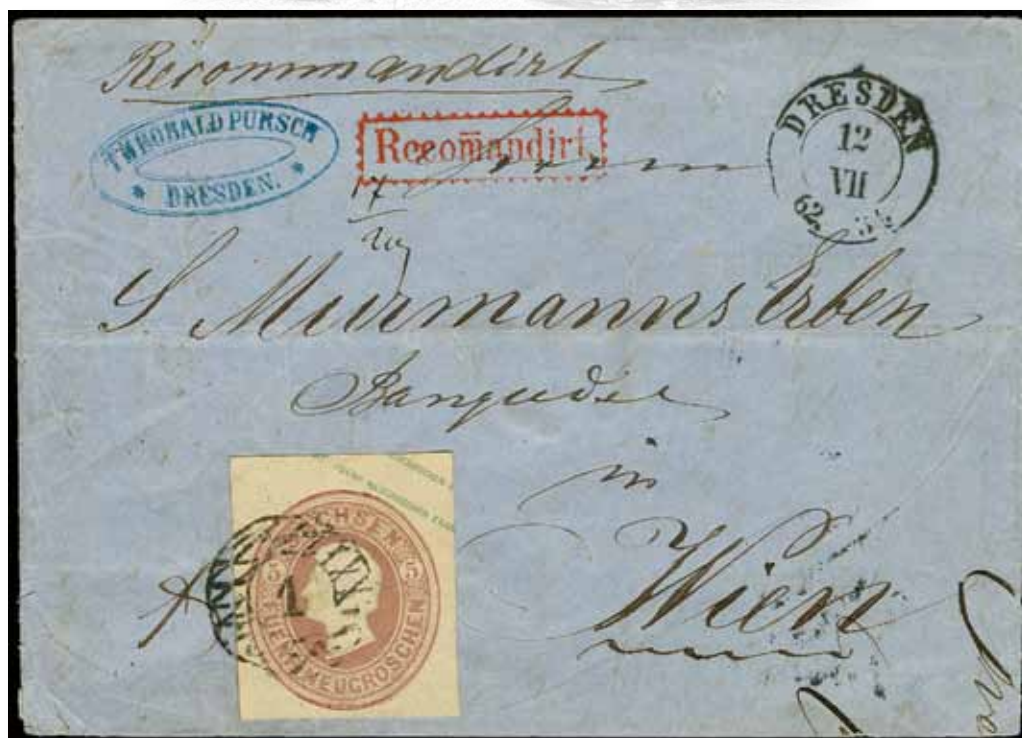 Recommandirt
THEOBALD PURSCH
* DRESDEN. *
Recom̄andirt.
DRESDEN
12
VII
62
franco
S. Murmanns Erben
in
Wien
SACHSEN
5 5
FUENF NEUGROSCHEN
1